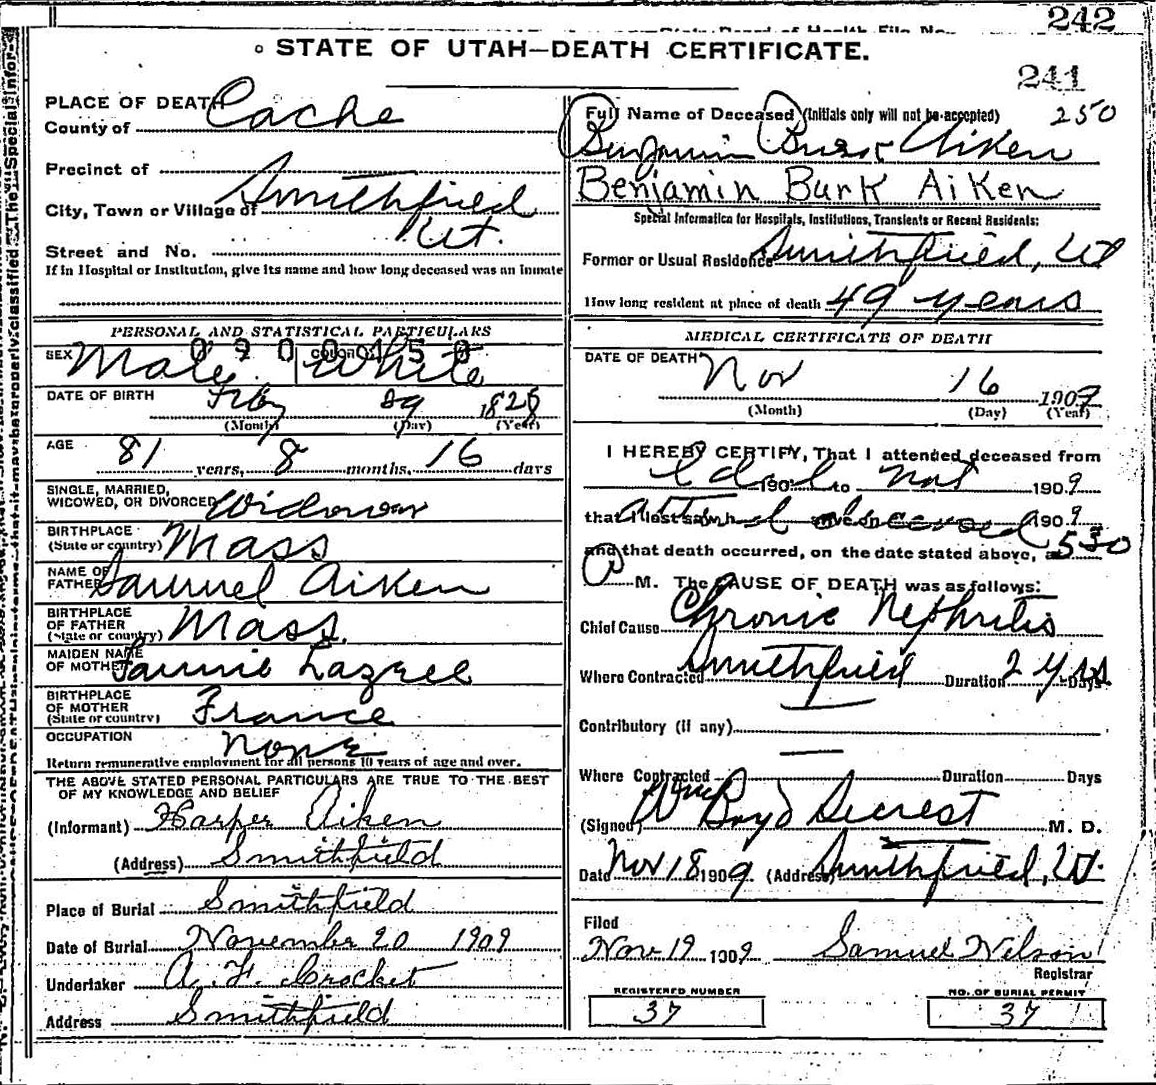 242
State Board of Health File No.
STATE OF UTAH—DEATH CERTIFICATE.
241
250
PLACE OF DEATH
County of Cache
Precinct of
City, Town or Village of Smithfield
Street and No. Ut.
If in Hospital or Institution, give its name and how long deceased was an inmate
Full Name of Deceased (Initials only will not be accepted)
Benjamin Burk Aiken
Benjamin Burk Aiken
Special Information for Hospitals, Institutions, Transients or Recent Residents:
Former or Usual Residence Smithfield, Ut
How long resident at place of death 49 years
PERSONAL AND STATISTICAL PARTICULARS
0900150
SEX Male White
DATE OF BIRTH Feby 29 1828
(Month) (Day) (Year)
AGE 81 years, 8 months, 16 days
SINGLE, MARRIED,
WIDOWED, OR DIVORCED Widower
BIRTHPLACE
(State or country) Mass
NAME OF
FATHER Samuel Aiken
BIRTHPLACE
OF FATHER
(State or country) Mass.
MAIDEN NAME
OF MOTHER Fannie
BIRTHPLACE
OF MOTHER
(State or country) France
OCCUPATION None
Return remunerative employment for all persons 10 years of age and over.
THE ABOVE STATED PERSONAL PARTICULARS ARE TRUE TO THE BEST
OF MY KNOWLEDGE AND BELIEF
(Informant) Harper Aiken
(Address) Smithfield
Place of Burial Smithfield
Date of Burial November 20 1909
Undertaker A. F. Crocket
Address Smithfield
MEDICAL CERTIFICATE OF DEATH
DATE OF DEATH Nov 16 1909
(Month) (Day) (Year)
I HEREBY CERTIFY, That I attended deceased from
I did 190 to not 1909
that I last saw h attend alive on deceased 1909
and that death occurred, on the date stated above, at 530
P M. The CAUSE OF DEATH was as follows:
Chief Cause Chronic Nephritis
Where Contracted Smithfield Duration 2 yrs Days
Contributory (if any)
Where Contracted Duration Days
(Signed) Wm Boyd Secrest M. D.
Date Nov 18 1909 (Address) Smithfield, Ut.
Filed
Nov 19 1909 Samuel Nelson
Registrar
REGISTERED NUMBER
37
NO. OF BURIAL PERMIT
37